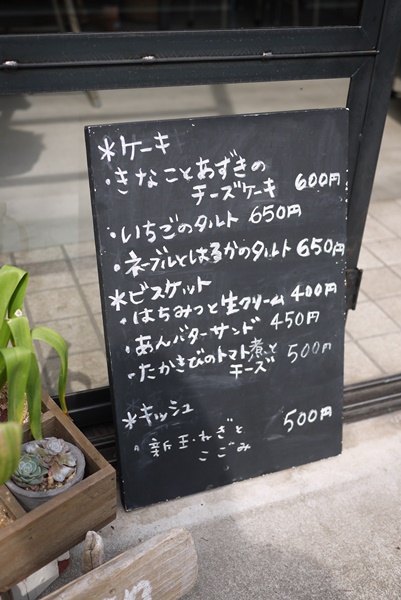 *ケーキ
・きなことあずきの
チーズケーキ 600円
・いちごのタルト 650円
・ネーブルとはるかのタルト 650円
*ビスケット
・はちみつと生クリーム 400円
・あんバターサンド 450円
・たかきびのトマト煮と 500円
チーズ
*キッシュ
500円
・新玉ねぎと
こごみ